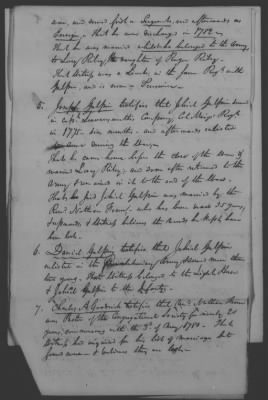 war, and served first a Sergeant, and afterwards as
Surgeon, that he was discharged in 1782
That he was married whilst he belonged to the Army,
to Lucy Riley, the daughter of Roger Riley.
That Witness was a in the same Regt. with
Galpin, and is now a Pensioner.
5. Joseph Galpin testifies that Jehiel Galpin served
in Capt. Leavenworth's Company, Col. Regt.
in 1775. six months, and afterwards enlisted
during the War,
That he came home before the close of the war &
married Lucy Riley, and soon after returned to the
Army & remained in it to the end of the War.
That he said Jehiel Galpin was married by the
Revd. Nathan Fenn, who has been dead 35 years,
& upwards, & Witness believes the Records he kept, have
been lost.
6. Daniel Galpin, testifies that Jehiel Galpin
enlisted in the Army, & served more than
two years. That Witness belonged to the Light Horse
& Jehiel Galpin to the Infantry.
7. Charles A. Goodrich testifies that Revd. Nathan Fenn
was Pastor of the Congregational Society for nearly 20
years, commencing with the 3d. of May 1780. That
Witness has inquired for his list of marriages but
found none & believes they are lost.